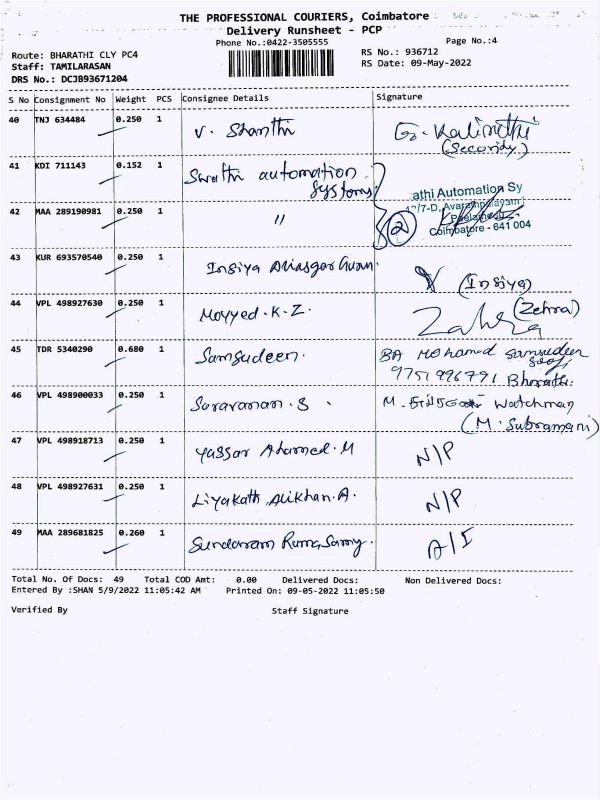 THE PROFESSIONAL COURIERS, Coimbatore
Delivery Runsheet - PCP
Phone No.:0422-3505555
Page No.:4
Route: BHARATHI CLY PC4
RS No.: 936712
Staff: TAMILARASAN
RS Date: 09-May-2022
DRS No.: DCJB93671204
S No Consignment No Weight PCS Consignee Details Signature
40 TNJ 634484 0.250 1 V. Shanthi
(Security)
41 KDI 711143 0.152 1 Swathi automation
Systoms
athi Automation Sy
42 MAA 289190981 0.250 1 "
2
Coimbatore - 641 004
43 KUR 693570540 0.250 1 Insiya
(Insiya)
44 VPL 498927630 0.250 1 Moyyed. K. Z.
(Zehra)
Zahra
45 TDR 5340290 0.680 1 Samsudeen.
BA Mohamed Samsudeen
9751996791 Bharathi
46 VPL 498900033 0.250 1 Saravanan. S
M. Watchman
(M. Subramani)
47 VPL 498918713 0.250 1 Yassar Ahamed. M N/P
48 VPL 498927631 0.250 1 Liyakath Alikhan. A. N/P
49 MAA 289681825 0.260 1 Sundaram A/I
Total No. Of Docs: 49 Total COD Amt: 0.00 Delivered Docs: Non Delivered Docs:
Entered By :SHAN 5/9/2022 11:05:42 AM Printed On: 09-05-2022 11:05:50
Verified By Staff Signature